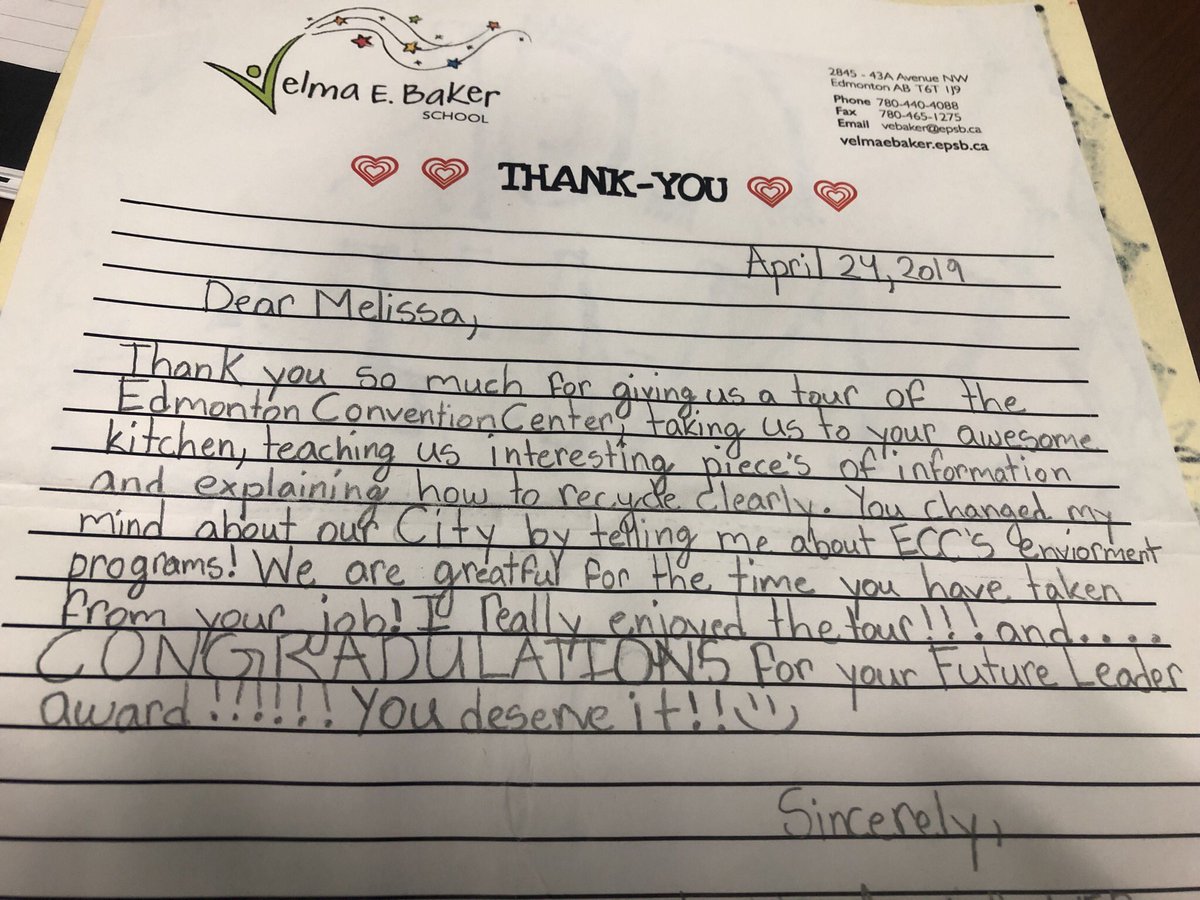 Velma E. Baker
SCHOOL
2845 - 43A Avenue NW
Edmonton AB T6T 1J9
Phone 780-440-4088
Fax 780-465-1275
Email vebaker@epsb.ca
velmaebaker.epsb.ca
THANK-YOU
April 24, 2019
Dear Melissa,
Thank you so much for giving us a tour of the
Edmonton Convention Center, taking us to your awesome
kitchen, teaching us interesting piece's of information
and explaining how to recycle clearly. You changed my
mind about our City by telling me about ECC's enviorment
programs! We are greatful for the time you have taken
from your job! I really enjoyed the tour!!! and....
CONGRADULATIONS for your Future Leader
award!!!!!! You deserve it!!
Sincerely,